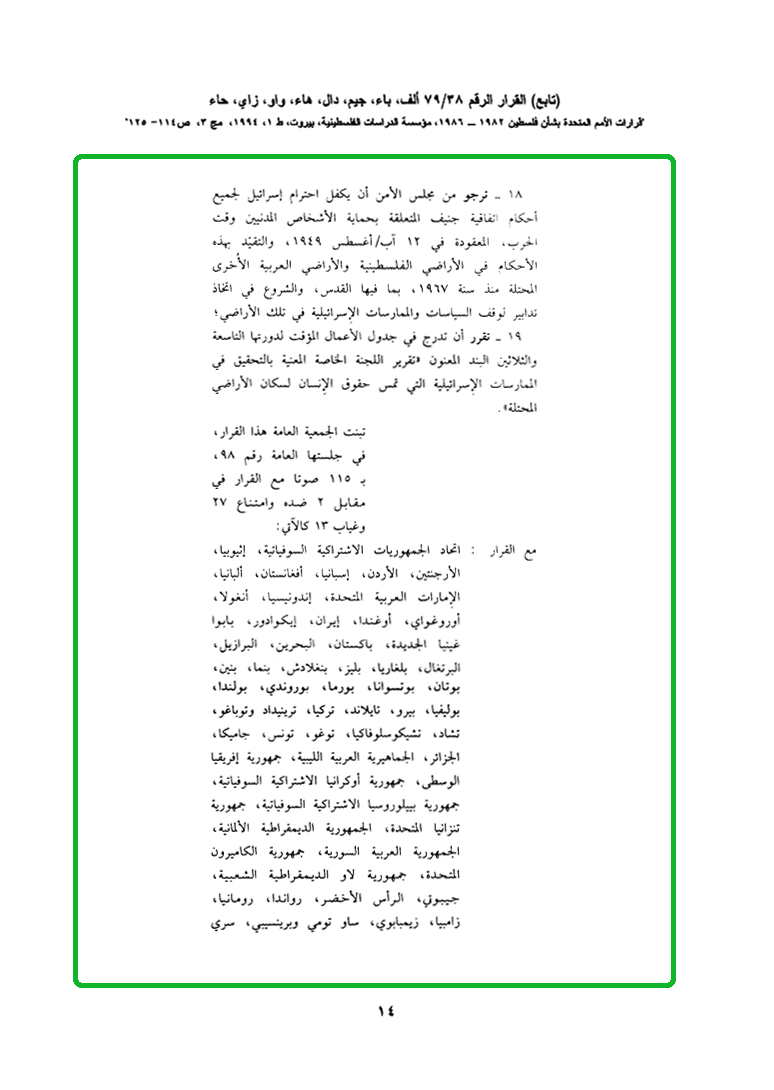 (تابع) القرار الرقم ٧٩/٣٨ ألف، باء، جيم، دال، هاء، واو، زاي، حاء
"قرارات الأمم المتحدة بشأن فلسطين ١٩٨٢ ــ ١٩٨٦، مؤسسة الدراسات الفلسطينية، بيروت، ط ١، ١٩٩٤، مج ٣، ص١١٤- ١٢٥"
١٨ ــ ترجو من مجلس الأمن أن يكفل احترام إسرائيل لجميع
أحكام اتفاقية جنيف المتعلقة بحماية الأشخاص المدنيين وقت
الحرب، المعقودة في ١٢ آب/أغسطس ١٩٤٩، والتقيّد بهذه
الأحكام في الأراضي الفلسطينية والأراضي العربية الأخرى
المحتلة منذ سنة ١٩٦٧، بما فيها القدس، والشروع في اتخاذ
تدابير لوقف السياسات والممارسات الإسرائيلية في تلك الأراضي؛
١٩ ــ تقرر أن تدرج في جدول الأعمال المؤقت لدورتها التاسعة
والثلاثين البند المعنون «تقرير اللجنة الخاصة المعنية بالتحقيق في
الممارسات الإسرائيلية التي تمس حقوق الإنسان لسكان الأراضي
المحتلة».
تبنت الجمعية العامة هذا القرار،
في جلستها العامة رقم ٩٨،
بـ ١١٥ صوتا مع القرار في
مقابل ٢ ضده وامتناع ٢٧
وغياب ١٣ كالآتي:
مع القرار : اتحاد الجمهوريات الاشتراكية السوفياتية، إثيوبيا،
الأرجنتين، الأردن، إسبانيا، أفغانستان، ألبانيا،
الإمارات العربية المتحدة، إندونيسيا، أنغولا،
أوروغواي، أوغندا، إيران، إيكوادور، بابوا
غينيا الجديدة، باكستان، البحرين، البرازيل،
البرتغال، بلغاريا، بليز، بنغلادش، بنما، بنين،
بوتان، بوتسوانا، بورما، بوروندي، بولندا،
بوليفيا، بيرو، تايلاند، تركيا، ترينيداد وتوباغو،
تشاد، تشيكوسلوفاكيا، توغو، تونس، جاميكا،
الجزائر، الجماهيرية العربية الليبية، جمهورية إفريقيا
الوسطى، جمهورية أوكرانيا الاشتراكية السوفياتية،
جمهورية بييلوروسيا الاشتراكية السوفياتية، جمهورية
تنزانيا المتحدة، الجمهورية الديمقراطية الألمانية،
الجمهورية العربية السورية، جمهورية الكاميرون
المتحدة، جمهورية لاو الديمقراطية الشعبية،
جيبوتي، الرأس الأخضر، رواندا، رومانيا،
زامبيا، زيمبابوي، ساو تومي وبرينسيبي، سري
١٤